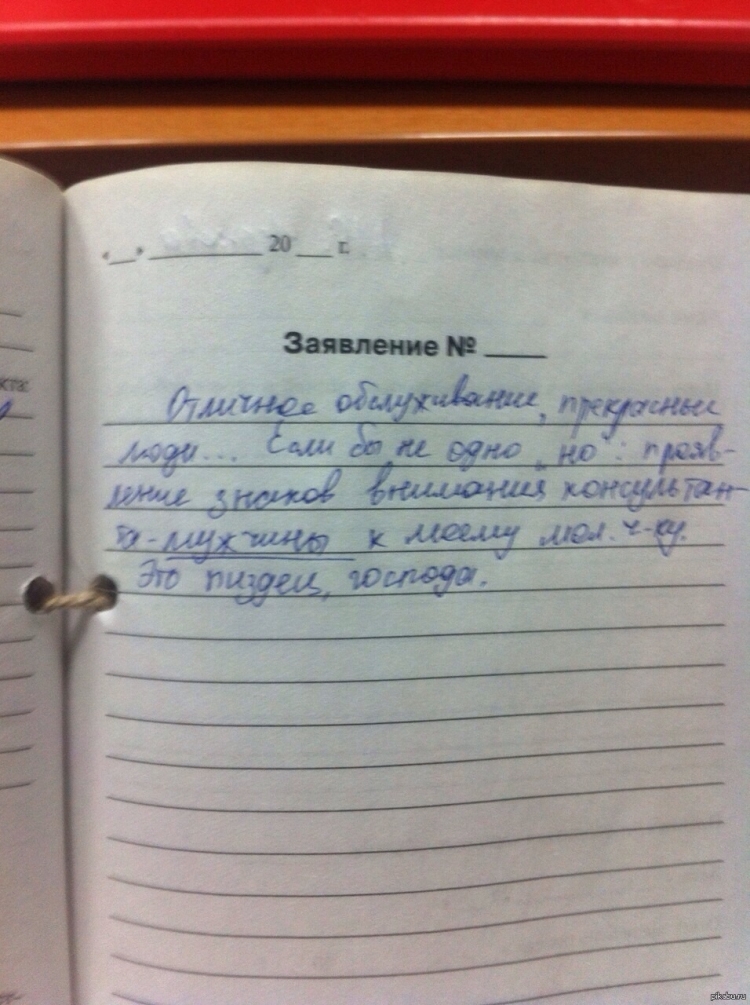 «__» ________ 20 ___ г.
Заявление № ____
Отличное обслуживание, прекрасные
люди... Если бы не одно "но": прояв-
ление знаков внимания консультан-
та-мужчины к моему мол. ч-ку.
Это пиздец, господа.
кта:
pikabu.ru